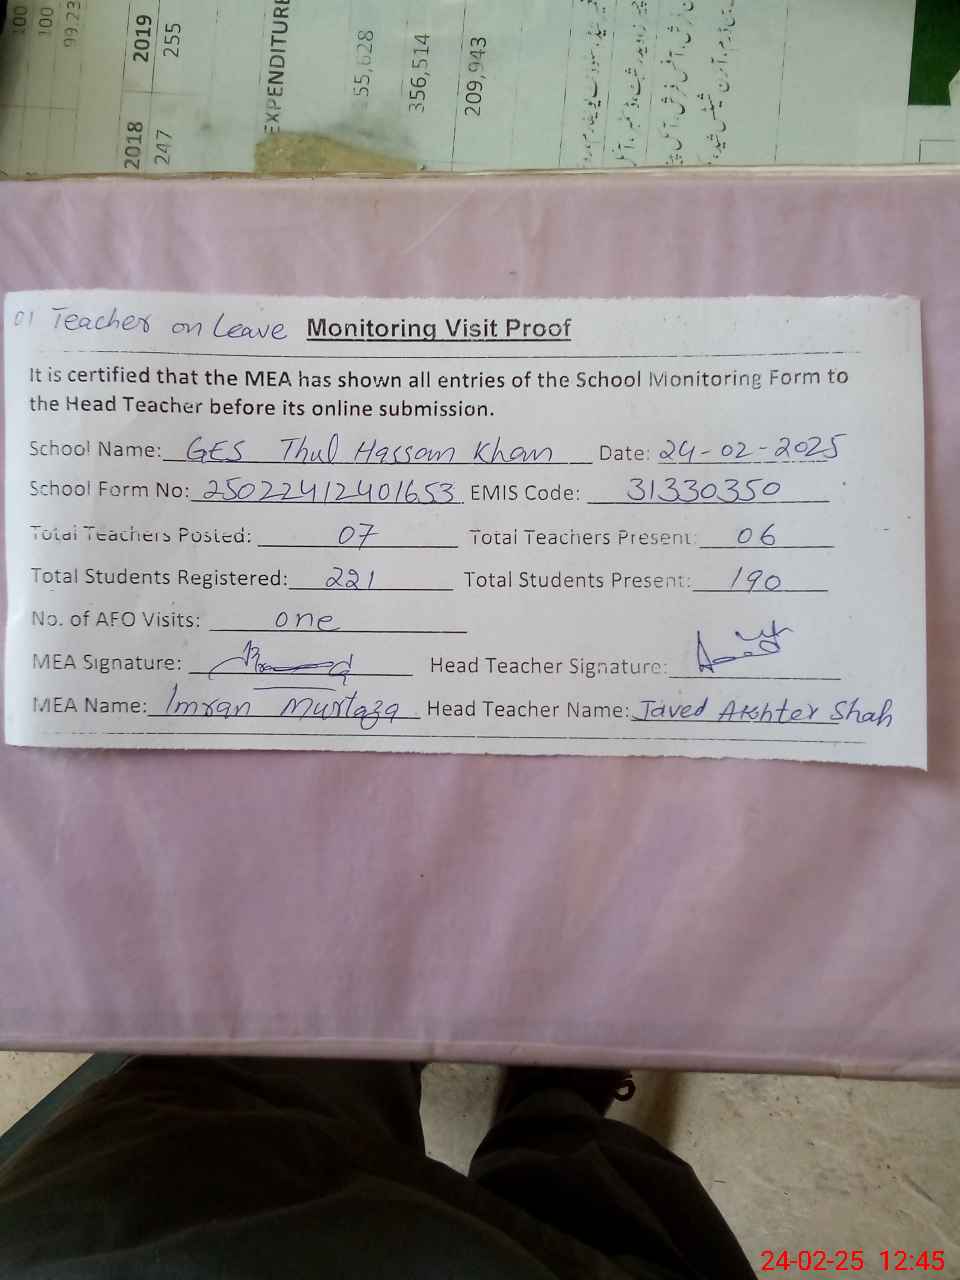 100
100
99.23
2018 2019
247 255
EXPENDITURE
356,514
209,943
01 Teacher on Leave Monitoring Visit Proof
It is certified that the MEA has shown all entries of the School Monitoring Form to
the Head Teacher before its online submission.
School Name: GES Thul Hassan Khan Date: 24-02-2025
School Form No: 25022412401653 EMIS Code: 31330350
Total Teachers Posted: 07 Total Teachers Present: 06
Total Students Registered: 221 Total Students Present: 190
No. of AFO Visits: one
MEA Signature: Head Teacher Signature:
MEA Name: Imran Murtaza Head Teacher Name: Javed Akhter Shah
24-02-25 12:45